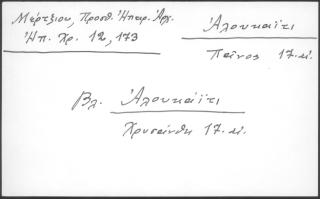 Μέρτζιου, Προσθ. Ἠπειρ. Ἀρχ.
Ἠπ. Χρ. 12, 173
Ἀλουκάϊτι
Πάϊνος 17. αἰ.
Βλ. Ἀλουκάϊτι
Χρυσάνθη 17. αἰ.